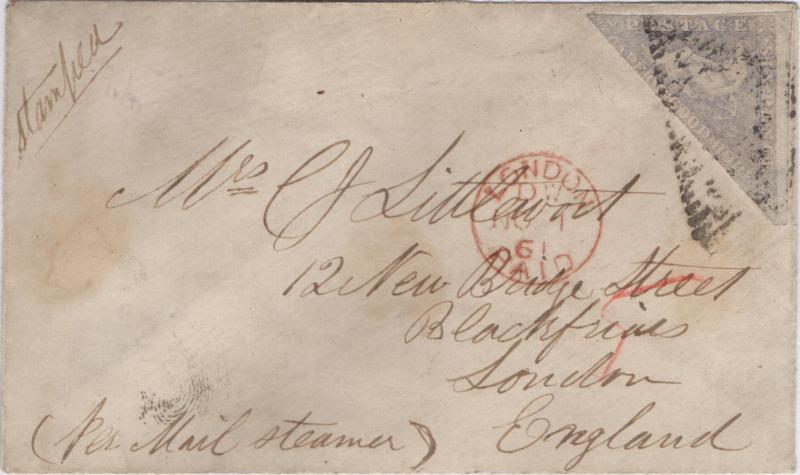 stamped
POSTAGE
Mrs C J Littlewort
LONDON
DW
NO 1
61
PAID
12 New Bridge Street
Blackfriars
London
England
(Per Mail steamer)